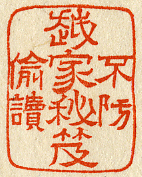 越家秘笈
不防
偷讀